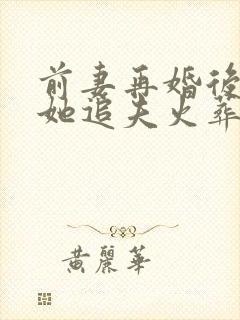 前妻再婚後
她追夫火葬
黃麗華